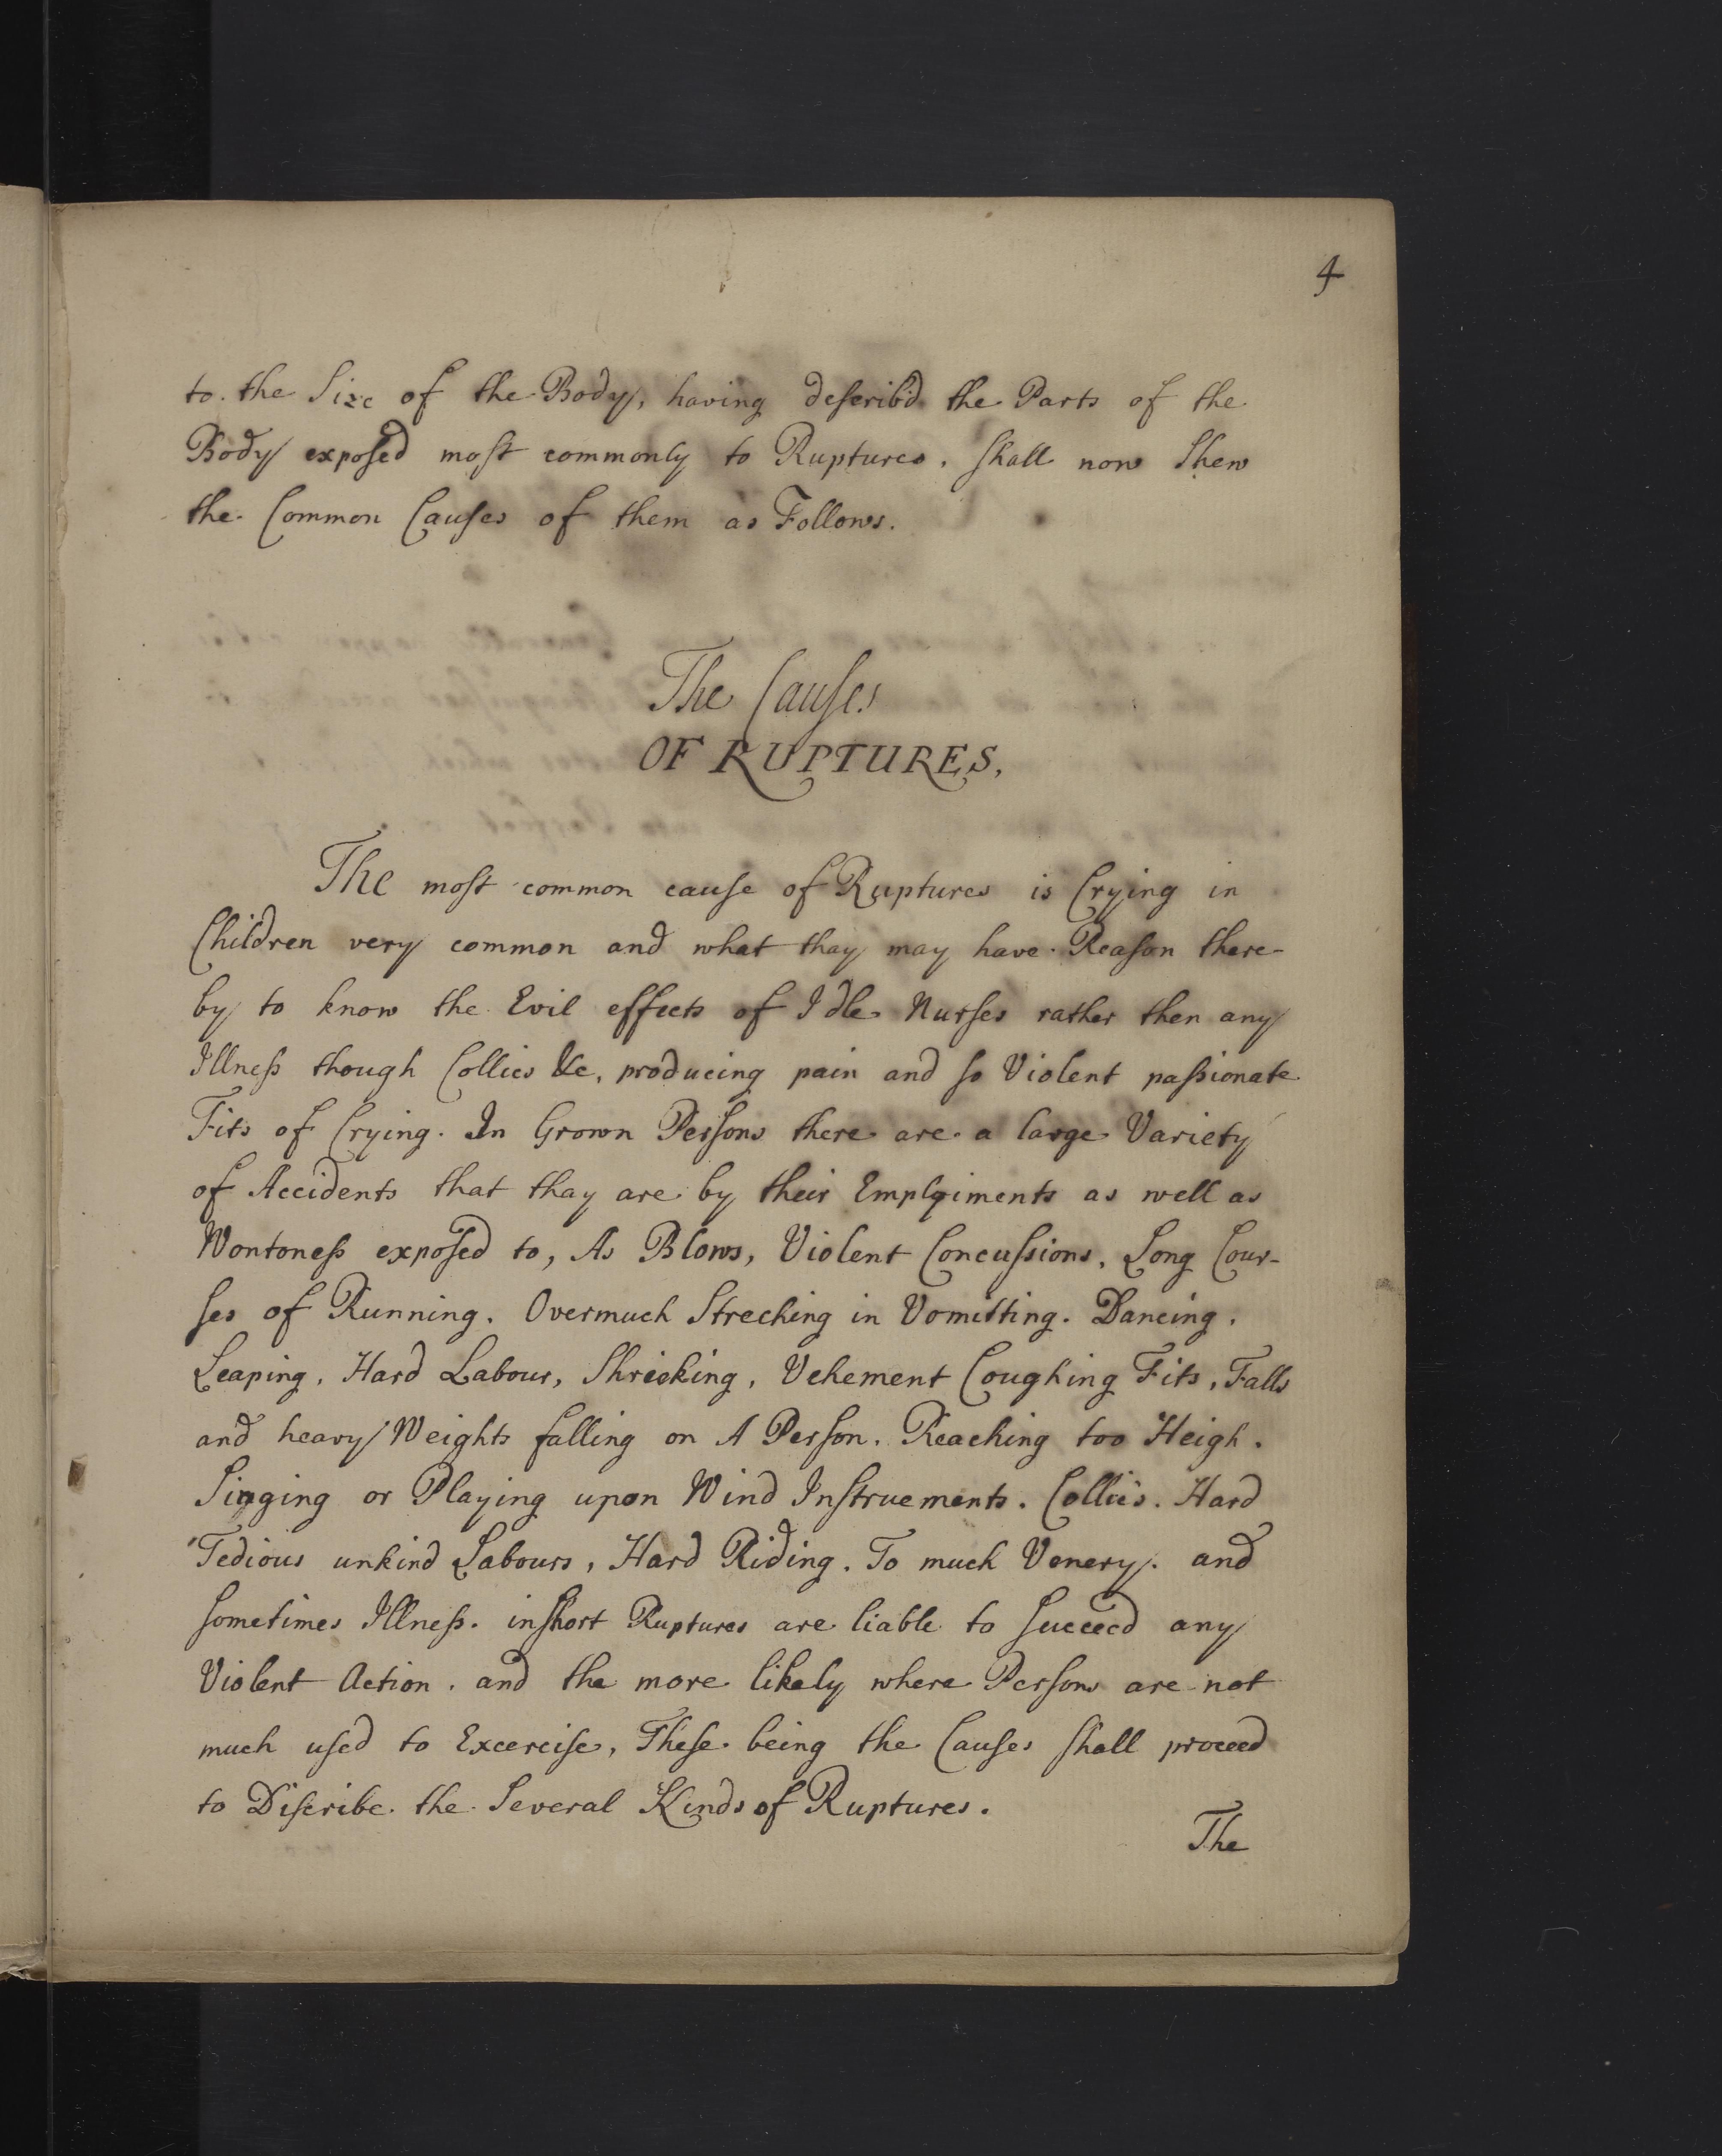 4
to the Size of the Body, having describ'd the Parts of the
Body exposed most commonly to Ruptures, shall now Shew
the Common Causes of them as Follows.
The Causes
OF RUPTURES.
The most common cause of Ruptures is Crying in
Children very common and what thay may have Reason there-
by to know the Evil effects of Idle Nurses rather then any
Illness though Collics &c, producing pain and so Violent passionate
Fits of Crying. In Grown Persons there are a large Variety
of Accidents that thay are by their Emplyiments as well as
Wontoness exposed to, As Blows, Violent Concussions, Long Cour-
ses of Running. Overmuch Streching in Vomitting. Dancing,
Leaping, Hard Labour, Shrieking, Vehement Coughing Fits, Falls
and heavy Weights falling on A Person. Reaching too Heigh.
Singing or Playing upon Wind Instruements. Collics. Hard
Tedious unkind Labours, Hard Riding. To much Venery. and
sometimes Illness. inshort Ruptures are liable to succeed any
Violent Action. and the more likely where Persons are not
much used to Excercise, These being the Causes shall proceed
to Discribe the Several Kinds of Ruptures.
The